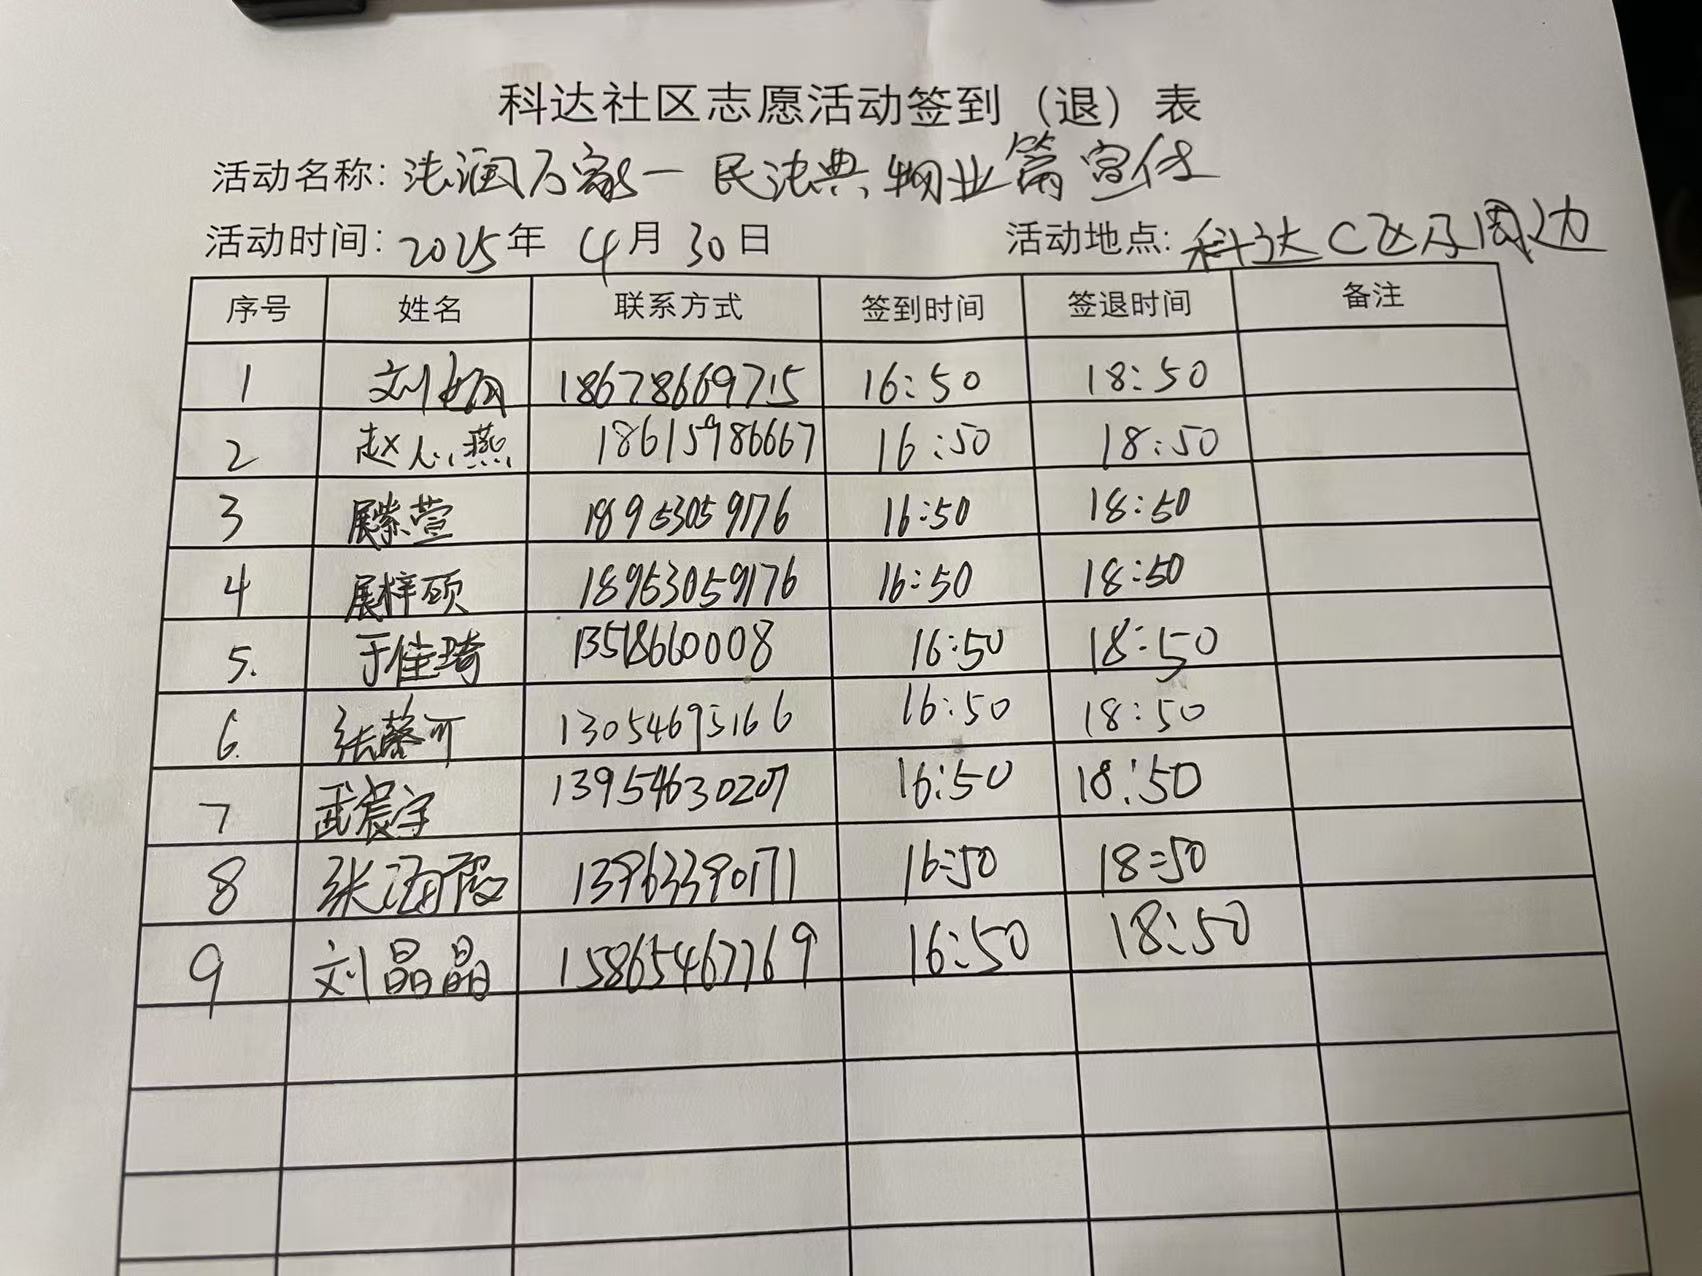 科达社区志愿活动签到（退）表
活动名称: 法润万家一 民法典物业篇宣传
活动时间: 2025年 4月 30日 活动地点: 科达C区及周边
序号 姓名 联系方式 签到时间 签退时间 备注
1 刘 18678669715 16:50 18:50
2 赵心燕 18615986667 16:50 18:50
3 展紫萱 18953059176 16:50 18:50
4 展梓硕 18953059176 16:50 18:50
5. 于佳琦 13518660008 16:50 18:50
6. 张馨可 13054695166 16:50 18:50
7 武宸宇 13954630207 16:50 18:50
8 张海霞 13963390171 16:50 18:50
9 刘晶晶 15865467769 16:50 18:50